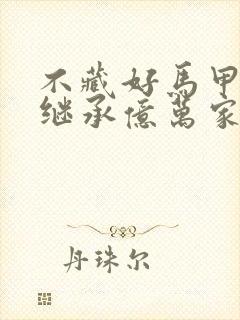 不藏好馬甲
继承億萬家
丹珠尔